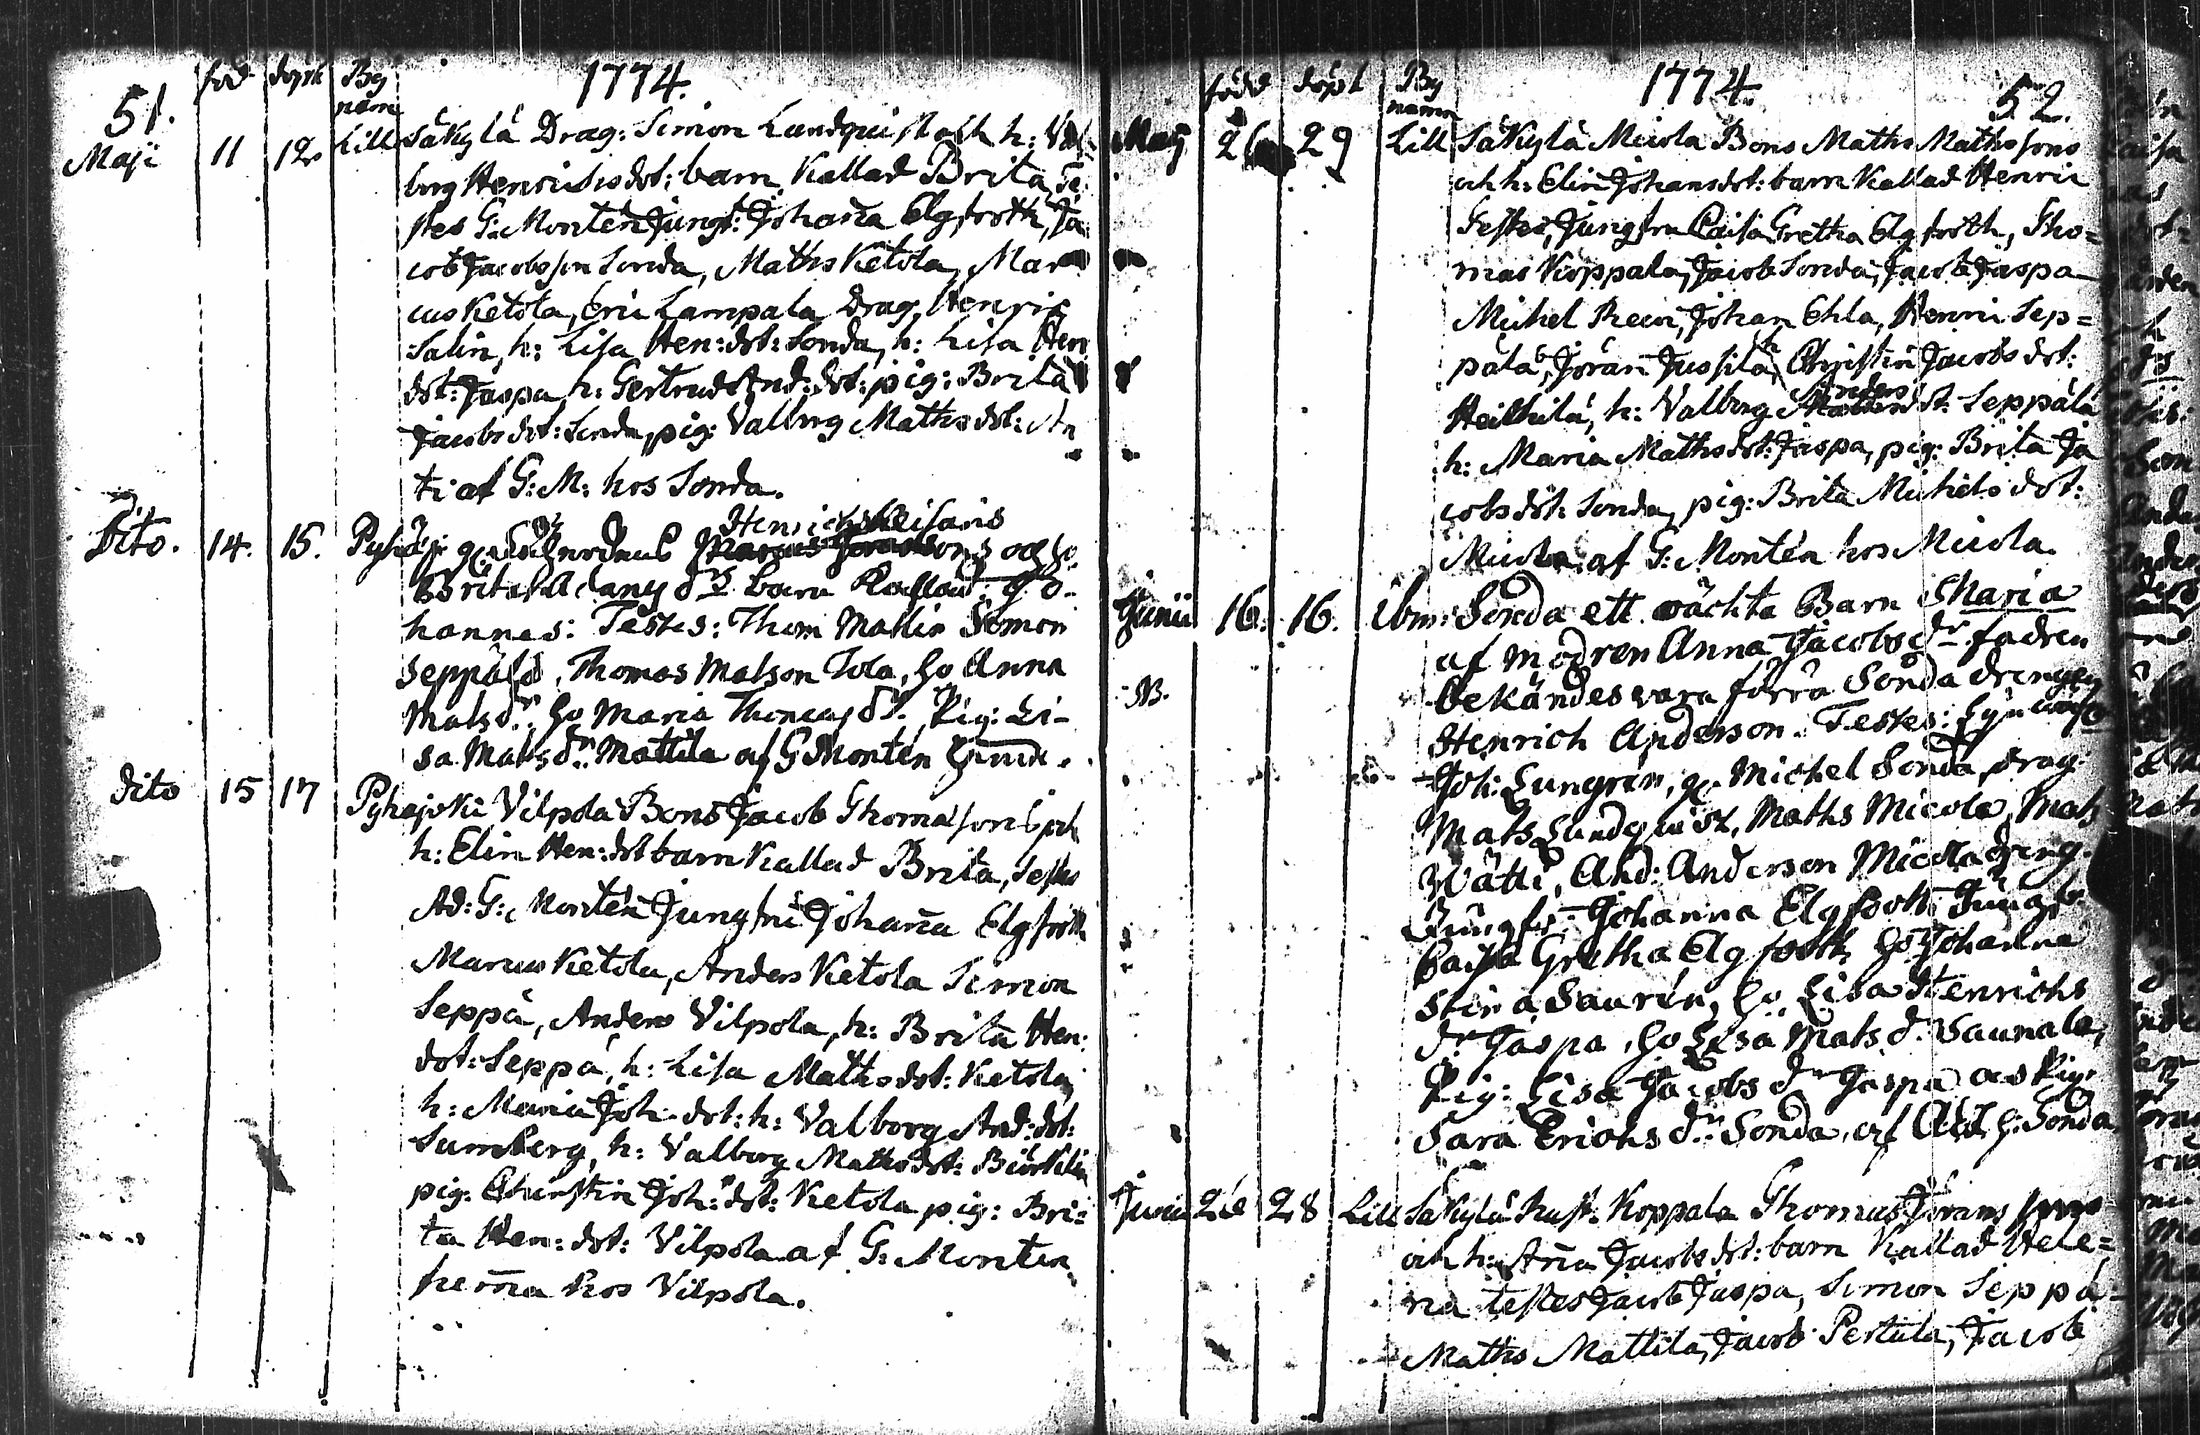 51.
föd döpt By namn 1774.
Maji 11 12 Lill Säkylä Drag: Simon Lundquist och h: Val-
borg Henrichsdot: barn kallad Brita, Te-
stes G: Montén Jungf: Johan̄a Elgfooth, Ja-
cob Jacobsson Sonda, Maths Ketola, Mar-
cus Ketola, Eric Lampala Drag. Henric
Salin, h: Lisa Hen: dot: Sonda, h: Lisa Hen
dot: Jaspa h: Gertrud And: dot: pig: Brita
Jacobs dot: Sonda, pig: Valborg Maths dot: An
ti af G: M: hos Sonda.
Dito. 14. 15. Henrich
och ho.
Brita barn Kallad Jo-
hannes: Testes: Thom Mallin Simon
Seppälä, Thomas Matson Tola, ho Anna
Matsdr. ho Maria Thomas dr. Pig: Li-
sa Mats dr. Mattila af G Montén
dito 15 17 Pyhäjoki Vilpola Bons Jacob Thomassons och
h: Elin Hen: dot barn kallad Brita, Testes
Ad: G: Montén Jungfru Johan̄a Elgfooth
Marcus Ketola, Anders Ketola Simon
Seppä, Anders Vilpola, h: Brita Hen:
dot: Seppä, h: Lisa Maths dot: Ketola
h: Maria Joh. dot: h: Valborg And: dot:
Sumberg, h: Valborg Maths dot:
pig: Christin Joh: dot: Ketola pig: Bri-
ta Hen: dot: Vilpola af G: Montén
hem̄a hos Vilpola.
född döpt By namn 1774. 52.
Maij 26 29 Lill Säkylä Micola Bons Maths Mathssons
och h: Elin Johansdot: barn kallad Henric
Testes, Jungfru Caisa Gretha Elgfooth, Tho-
mas Koppala, Jacob Sonda, Jacob Jaspa
Michel Johan Ehla, Henric Sep=
pälä, Jöran Jussila, Christin Jacobs dot:
Heikkilä, h: Valborg Anders dot: Seppälä
h: Maria Maths dot: Jaspa, pig: Brita Ja
cobs dot: Sonda, pig: Brita Michels dot:
Micola af G: Montén hos Micola.
Junii 16. 16. ibm: Sonda ett oächta Barn Maria
af modren Anna Jacobs dr fadren
NB. bekändes vara förra Sonda drengen
Henrich Anderson. Testes:
Joh: Lungren, Michel Sonda, Drag
Mats Lundquist, Maths Micola, Mats
Wätti, And: Anderson Micola dreng.
Jungfr: Johanna Elgfooth Jungfr
Caisa Gretha Elgfooth ho Johanna
Stina Saurén, ho Lisa Henrichs
dr Jaspa, ho Lisa Mats dr Saunala,
Pig: Lisa Jacobs dr Jaspa och Pig.
Sara Erichs dr Sonda, af
Junii 26 28 Lill Säkylä Rust: Koppala Thomas Jörans sons
och h: An̄a Jacobs dot: barn kallad Hele=
na testes Jacob Jaspa, Simon Seppä-
Maths Mattila, Jacob Pertula, Jacob